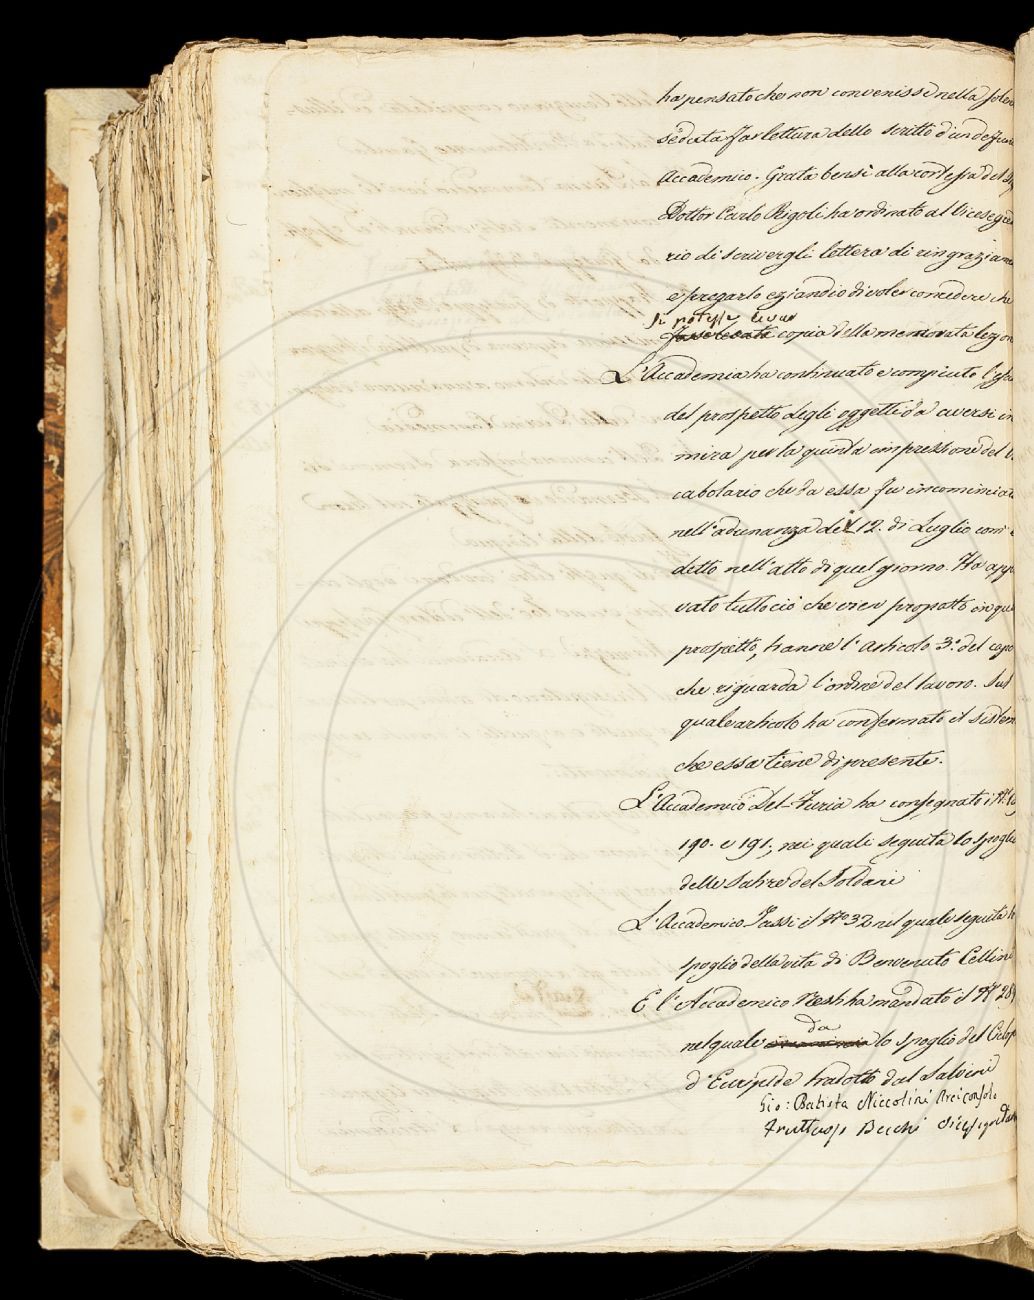 ha pensato che non convenisse nella solen
seduta far lettura dello scritto d'un defun
Accademico. Grata bensì alla cortesia del
Dottor Carlo Rigoli ha ordinato al Vicesegre
rio di scrivergli lettera di ringraziam
e pregarlo eziandio di voler concedere che
si potesse levar
copia della memorata lezon
L'Accademia ha continuato e compiuto l'
del prospetto degli oggetti da aversi in
mira per la quinta impressione del V
cabolario che da essa fu incominciat
nell'adunanza del 12. di Luglio com'è
detto nell'atto di quel giorno. Ha app
vato tutto ciò che vien proposto in qu
prospetto, hanne l'articolo 3.o del capo
che riguarda l'ordine del lavoro. Sul
quale articolo ha confermato il sistem
che essa tiene di presente.
L'Accademico Del-Furia ha consegnato i Ni
190. e 191., nei quali seguita lo spoglio
delle Satire del Soldani
L'Accademico Tassi il No 32 nel quale seguita lo
spoglio della vita di Benvenuto Cellini
E l'Accademico Nesti ha mandato il No 28
da
nel quale lo spoglio del Ciclop
d'Euripide tradotto dal Salvini
Gio: Batista Niccolini Arciconsolo
Fruttuoso Becchi Vicesegretario